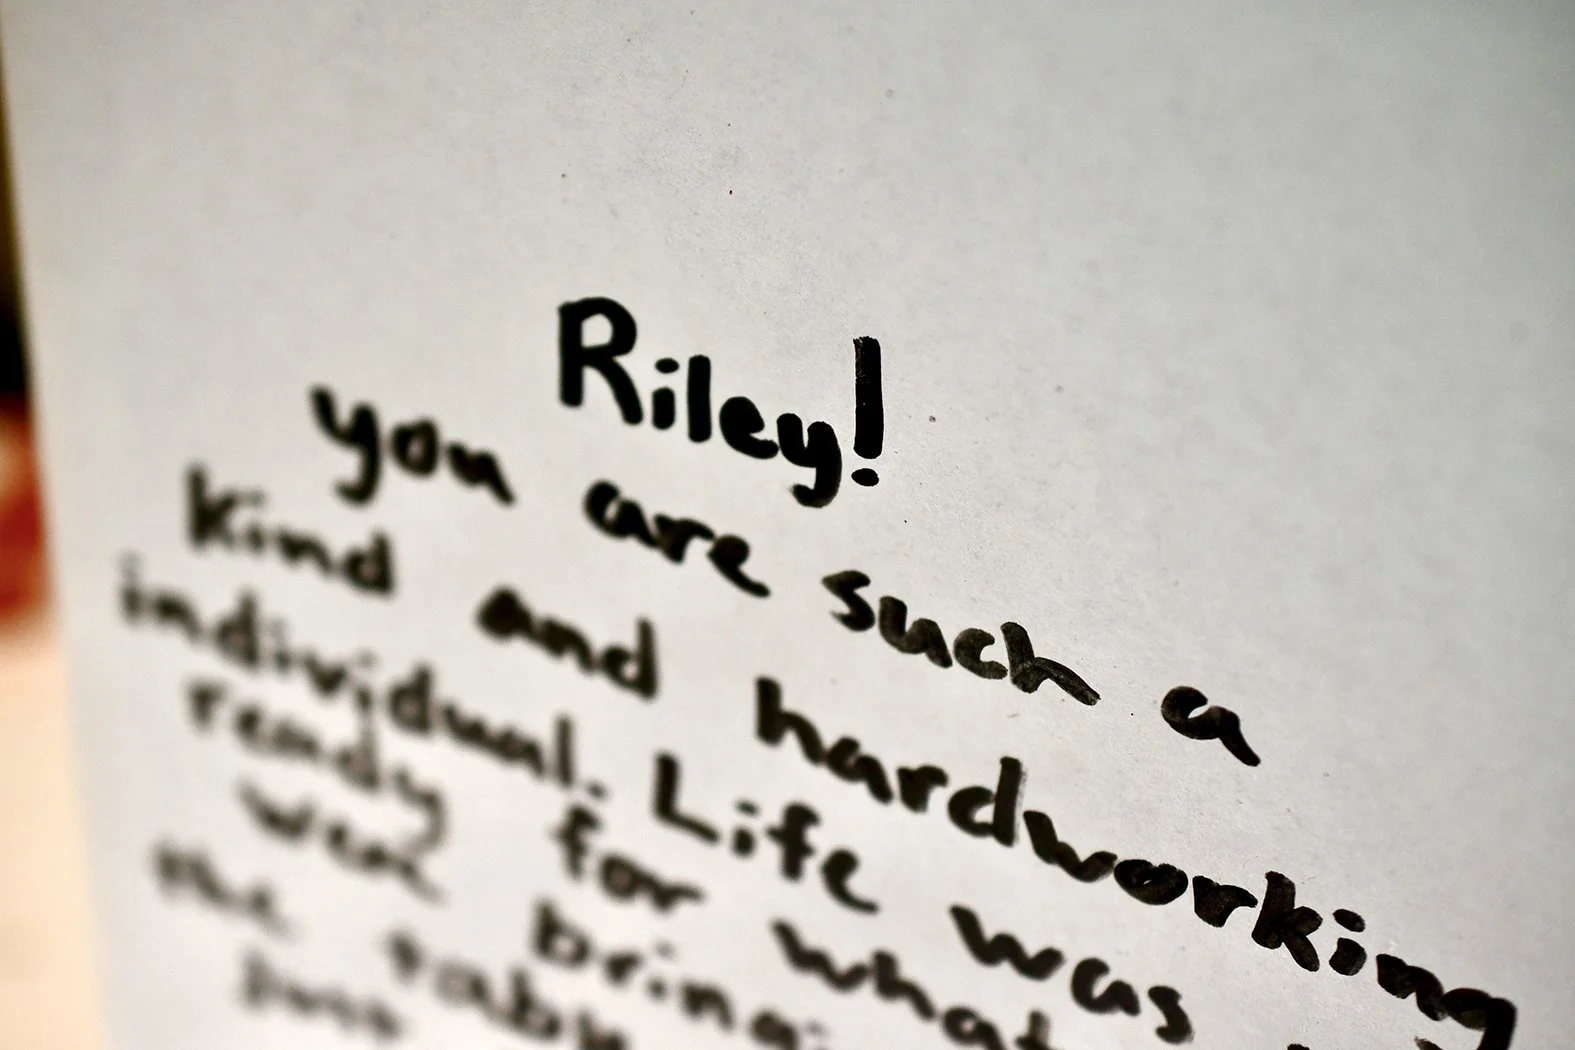 Riley!
you are such a
Kind and hardworking
individual. Life was
ready for what
were bringing
the table